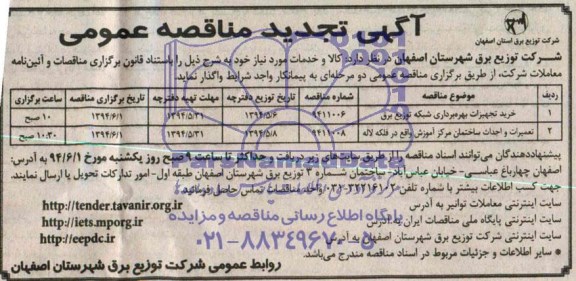 آگهی تجدید مناقصه عمومی
شرکت توزیع برق استان اصفهان
شرکت توزیع برق شهرستان اصفهان در نظر دارد: کالا و خدمات مورد نیاز خود به شرح ذیل را باستناد قانون برگزاری مناقصات و آئین‌نامه
معاملات شرکت، از طریق برگزاری مناقصه عمومی دو مرحله‌ای به پیمانکار واجد شرایط واگذار نماید.
ردیف موضوع مناقصه شماره مناقصه تاریخ توزیع دفترچه مهلت تهیه دفترچه تاریخ برگزاری مناقصه ساعت برگزاری
۱ خرید تجهیزات بهره‌برداری شبکه توزیع برق ۹۴۱۱۰۰۶ ۱۳۹۴/۵/۶ ۱۳۹۴/۵/۳۱ ۱۳۹۴/۶/۱ ۱۰ صبح
۲ تعمیرات و احداث ساختمان مرکز آموزش واقع در فلکه لاله ۹۴۱۱۰۰۸ ۱۳۹۴/۵/۸ ۱۳۹۴/۵/۳۱ ۱۳۹۴/۶/۱ ۱۰:۳۰ صبح
پیشنهاددهندگان می‌توانند اسناد مناقصه را از طریق سایت‌های زیر دریافت و حداکثر تا ساعت ۹ صبح روز یکشنبه مورخ ۹۴/۶/۱ به آدرس:
اصفهان چهارباغ عباسی- خیابان عباس‌آباد- ساختمان شماره ۳ توزیع برق شهرستان اصفهان طبقه اول- امور تدارکات تحویل یا ارسال نمایند.
جهت کسب اطلاعات بیشتر با شماره تلفن ۳۲۲۱۶۱۰۲-۰۳۱ واحد مناقصات تماس حاصل فرمائید.
سایت اینترنتی معاملات توانیر به آدرس http://tender.tavanir.org.ir
سایت اینترنتی پایگاه ملی مناقصات ایران به آدرس http://iets.mporg.ir
سایت اینترنتی شرکت توزیع برق شهرستان اصفهان به آدرس http://eepdc.ir
پایگاه اطلاع رسانی مناقصه و مزایده
۰۲۱-۸۸۳۴۹۶۷۰-۵
● سایر اطلاعات و جزئیات مربوط در اسناد مناقصه مندرج می‌باشد.
روابط عمومی شرکت توزیع برق شهرستان اصفهان